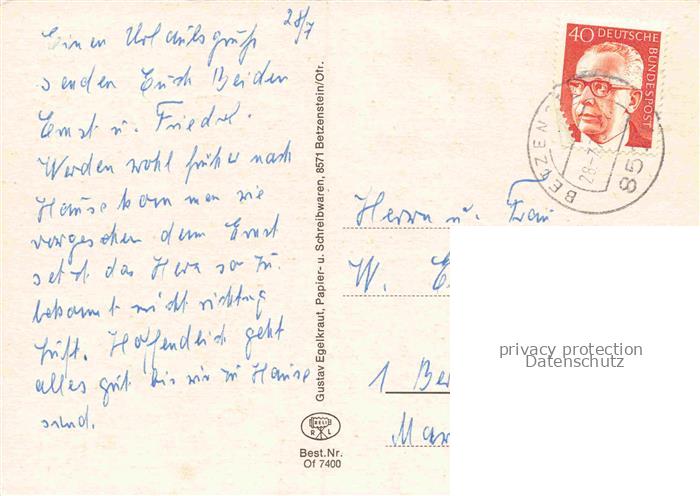 28/7
Einen Urlaubsgruß
senden Euch Beiden
Ernst u. Friedel.
Werden wohl früher nach
Hause kommen wie
vorgesehen denn Ernst
setzt das Herz so zu.
bekommt nicht richtig
Luft. Hoffendlich geht
alles gut bis wir zu Hause
sind.
Gustav Egelkraut, Papier- u. Schreibwaren, 8571 Betzenstein/Ofr.
BELI
R L
Best.Nr.
Of 7400
40 DEUTSCHE BUNDESPOST
BETZEN
28.-7
85
Herrn u. Frau
W.
1 Ber
Mar
privacy protection
Datenschutz